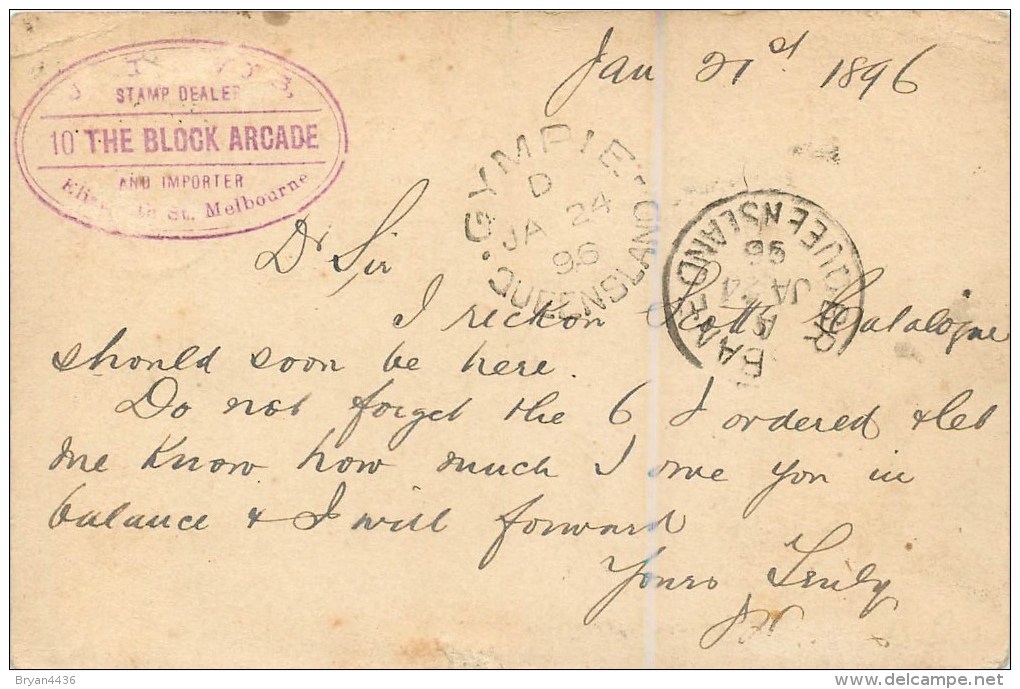 STAMP DEALER
10 THE BLOCK ARCADE
AND IMPORTER
St. Melbourne
Jan 21st 1896
GYMPIE
D
JA 24
96
QUEENSLAND
QUEENSLAND
96
JA 24
Dr Sir
I reckon Scotts Catalogue
should soon be here.
Do not forget the 6 I ordered & let
me know how much I owe you in
balance & I will forward
Yours Truly
Bryan4436
delcampe.net